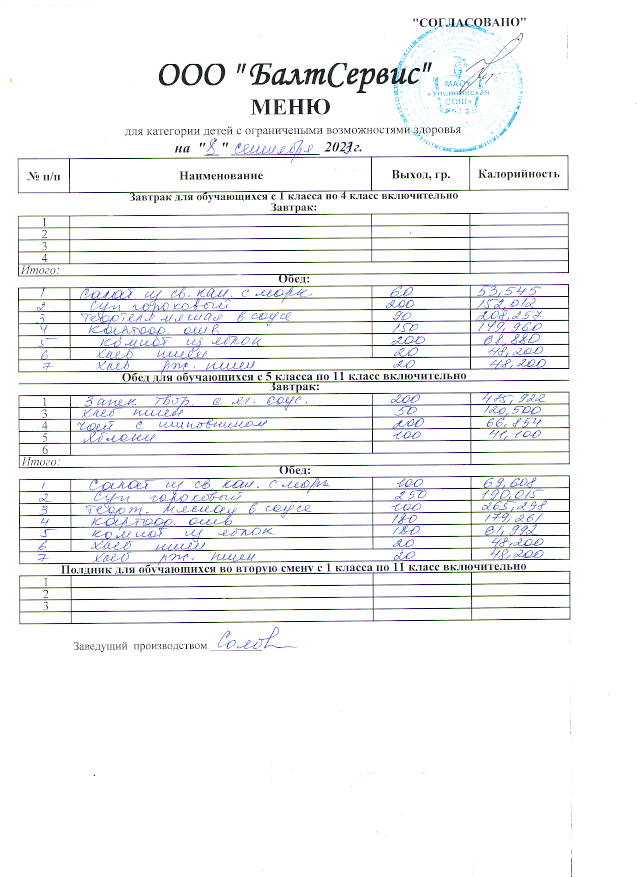 "СОГЛАСОВАНО"
ООО "БалтСервис"
МЕНЮ
МАОУ
«Ульяновская
СОШ»
для категории детей с ограничеными возможностями здоровья
на "8" сентября 2023г.
№ п/п Наименование Выход, гр. Калорийность
Завтрак для обучающихся с 1 класса по 4 класс включительно
Завтрак:
1
2
3
4
Итого:
Обед:
1 Салат из св. кап. с морк. 60 53,545
2 Суп гороховый 200 152,012
3 Тефтеля мясная в соусе 90 208,257
4 Картоф. отв 150 149,960
5 компот из яблок 200 68,880
6 хлеб пшен 20 48,200
7 хлеб рж. пшен 20 48,200
Обед для обучающихся с 5 класса по 11 класс включительно
Завтрак:
1 Запек твор. с яг. соус. 200 415,922
3 хлеб пшен 50 120,500
4 чай с шиповником 200 66,854
5 яблоки 100 41,100
6
Итого:
Обед:
1 Салат из св. кап. с морк 100 69,608
2 Суп гороховый 250 190,015
3 Тефт. мясная в соусе 100 265,298
4 картоф. отв 180 179,261
5 компот из яблок 180 61,992
6 хлеб пшен 20 48,200
7 хлеб рж. пшен 20 48,200
Полдник для обучающихся во вторую смену с 1 класса по 11 класс включительно
1
2
3
Заведущий производством